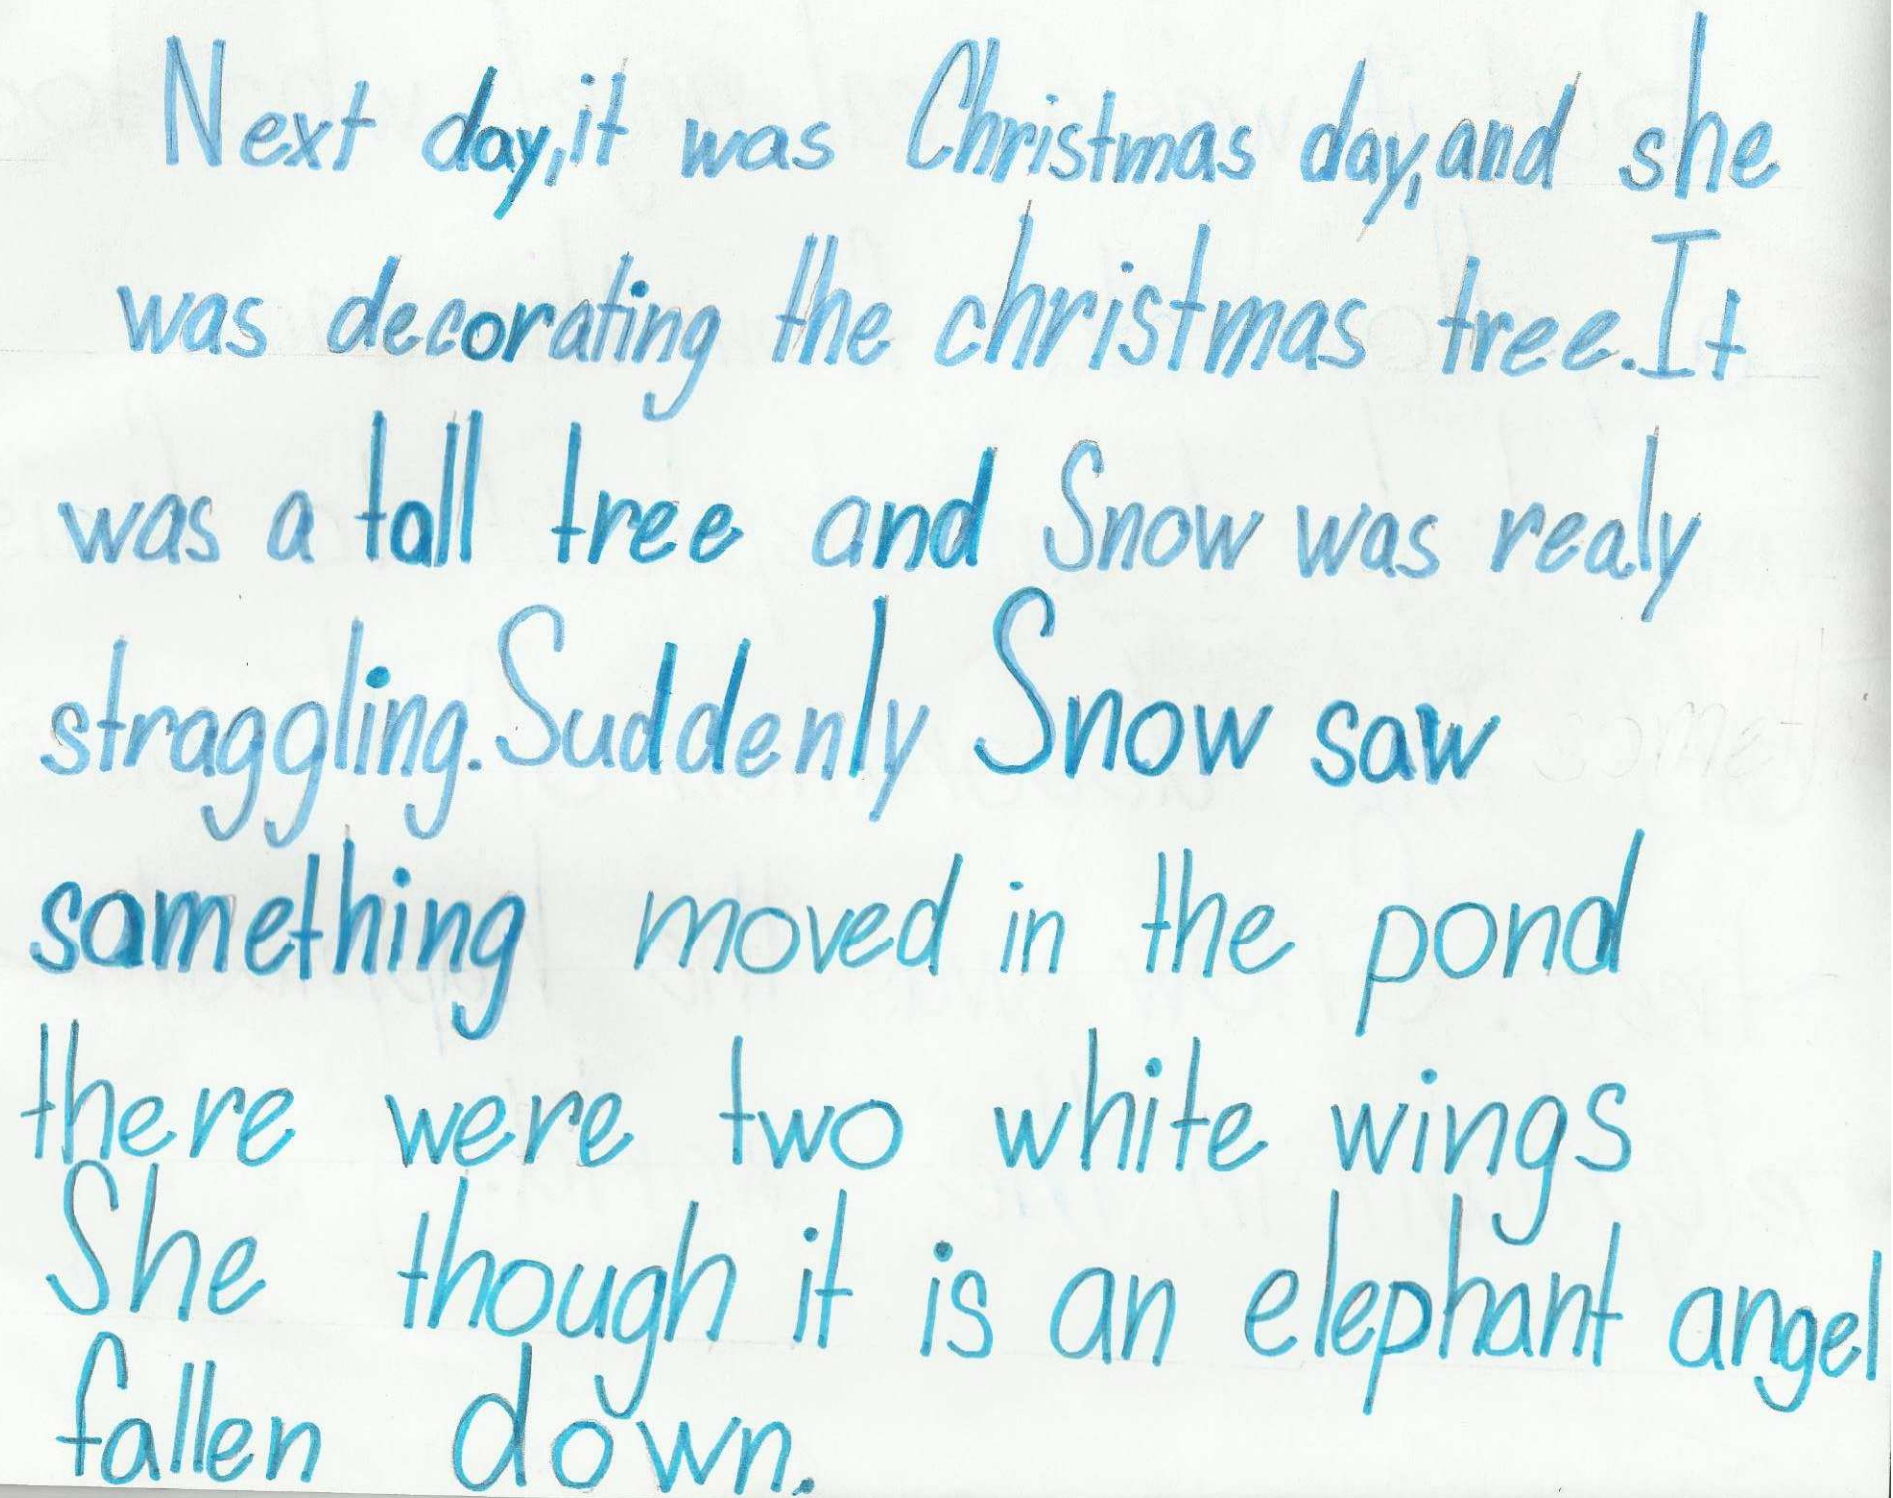 Next day, it was Christmas day, and she
was decorating the christmas tree. It
was a tall tree and Snow was realy
straggling. Suddenly Snow saw
something moved in the pond
there were two white wings
She though it is an elephant angel
fallen down.